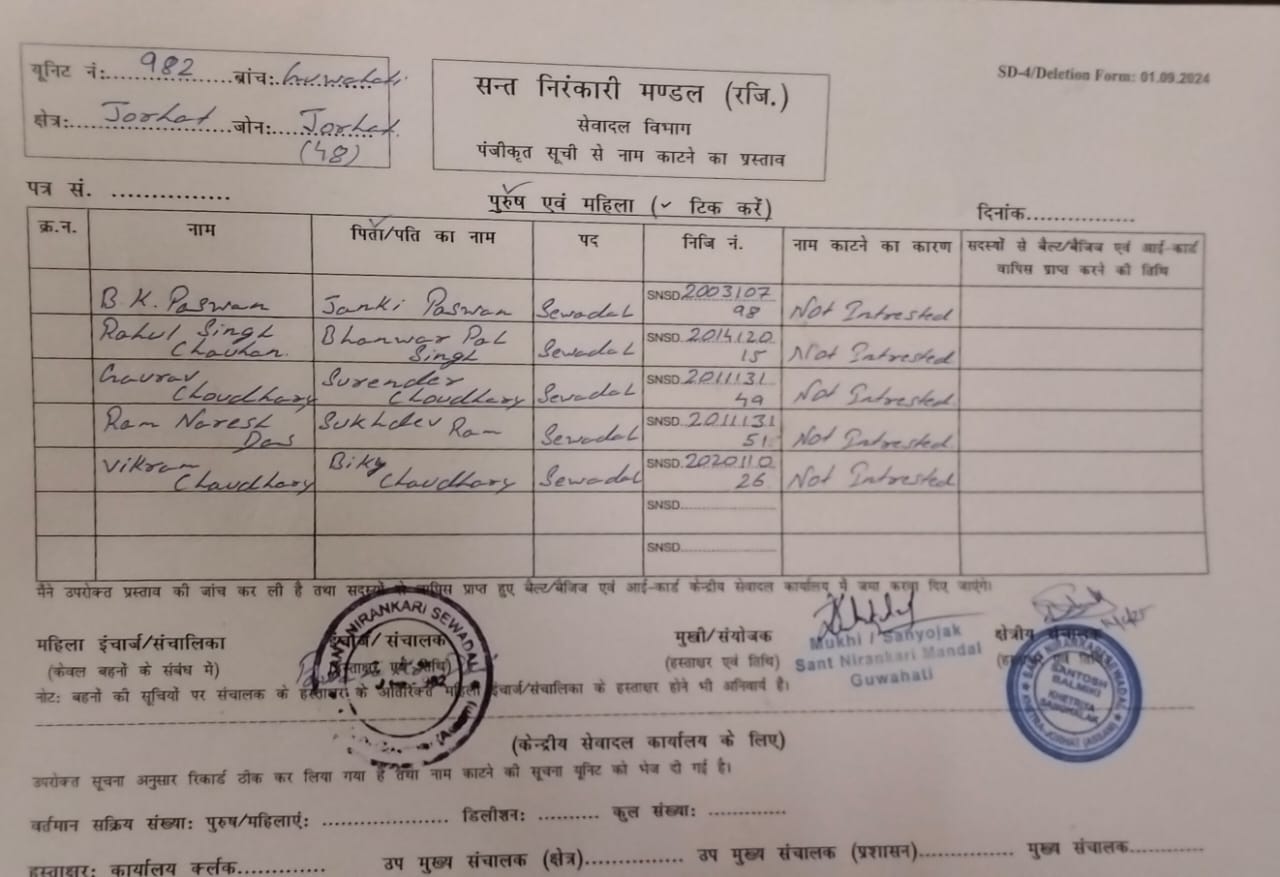 यूनिट नं:.....982.....ब्रांच:..Guwahati.
क्षेत्र:...Jorhat...जोन:...Jorhat.
(48)
सन्त निरंकारी मण्डल (रजि.)
सेवादल विभाग
पंजीकृत सूची से नाम काटने का प्रस्ताव
SD-4/Deletion Form: 01.09.2024
पत्र सं. ...............
पुरुष एवं महिला (✓ टिक करें)
दिनांक................
क्र.न. नाम पिता/पति का नाम पद निजि नं. नाम काटने का कारण सदस्यों से बैल्ट/बैजिज एवं आई-कार्ड
वापिस प्राप्त करने की तिथि
B.K. Paswan Janki Paswan Sewadal SNSD.2003107 98 Not Intrested
Rahul Singh Chauhan. Bhanwar Pal Singh Sewadal SNSD.2014120 15 Not Intrested
Gaurav Choudhary Surender Choudhary Sewadal SNSD.2011131 49 Not Intrested
Ram Naresh Das Sukhdev Ram Sewadal SNSD.2011131 51 Not Intrested
Vikram Chaudhary Biky Chaudhary Sewadal SNSD.2020110 26 Not Intrested
SNSD....................
SNSD....................
मैंने उपरोक्त प्रस्ताव की जांच कर ली है तथा सदस्यों से वापिस प्राप्त हुए बैल्ट/बैजिज एवं आई-कार्ड केन्द्रीय सेवादल कार्यालय में जमा करवा दिए जाएंगे।
महिला इंचार्ज/संचालिका इंचार्ज/संचालक मुखी/संयोजक क्षेत्रीय संचालक
(केवल बहनों के संबंध में) (हस्ताक्षर एवं तिथि) (हस्ताक्षर एवं तिथि) (हस्ताक्षर एवं तिथि)
SANT NIRANKARI SEWADAL
(Assam)
Mukhi / Sanyojak
Sant Nirankari Mandal
Guwahati
SANT NIRANKARI SEWADAL
SANTOSH
BALMIKI
KHETRIYA
SANCHALAK
KSHETRA-JORHAT (ASSAM)
नोट: बहनों की सूचियों पर संचालक के हस्ताक्षर के अतिरिक्त महिला इंचार्ज/संचालिका के हस्ताक्षर होने भी अनिवार्य है।
(केन्द्रीय सेवादल कार्यालय के लिए)
उपरोक्त सूचना अनुसार रिकार्ड ठीक कर लिया गया है तथा नाम काटने की सूचना यूनिट को भेज दी गई है।
वर्तमान सक्रिय संख्या: पुरुष/महिलाएं: .................... डिलीशन: .......... कुल संख्या: .............
हस्ताक्षर: कार्यालय क्लर्क............. उप मुख्य संचालक (क्षेत्र).............. उप मुख्य संचालक (प्रशासन)............. मुख्य संचालक............